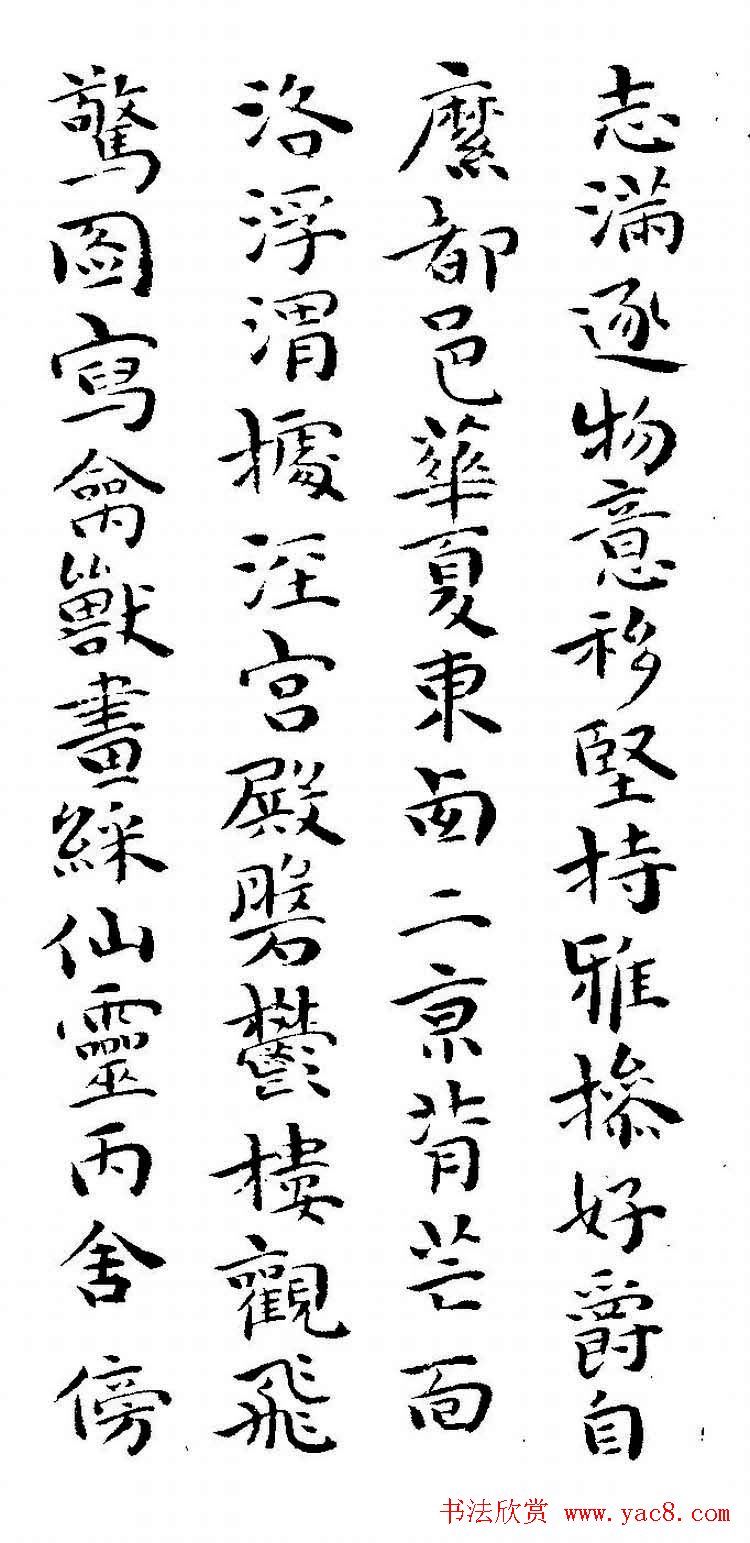 志滿逐物意移堅持雅操好爵自
縻都邑華夏東西二京背芒面
洛浮渭據涇宮殿磐鬱樓觀飛
驚圖寫禽獸畫綵仙靈丙舍傍
书法欣赏 www.yac8.com